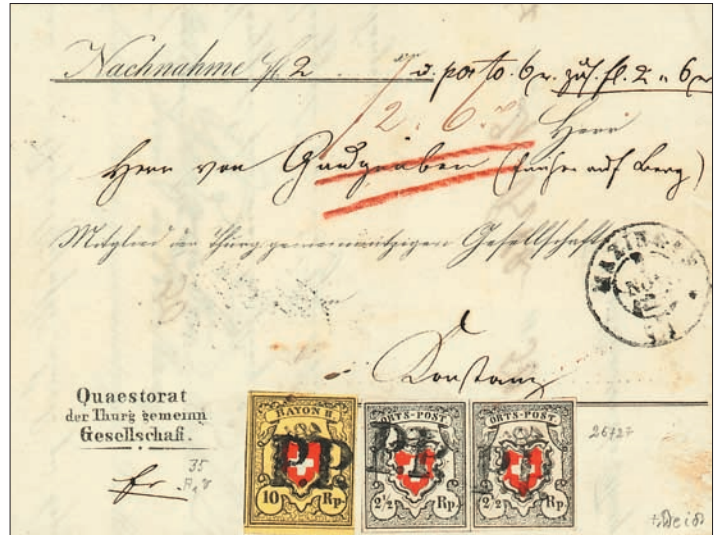 Nachnahme fl. 2 . . . . d. porto. 6 x. zus. fl. 2 " 6 x
2. 6.
Herr
Herrn von (früher auf Berg)
Mitglied der Thurg. gemeinnützigen Gesellschaft
Constanz
NOV
Quaestorat
der Thurg gemeinn
Gesellschaft.
fr
35
26727
RAYON II
P.P.
10 Rp.
ORTS-POST
P.P.
2½ Rp.
ORTS-POST
P.P.
2½ Rp.